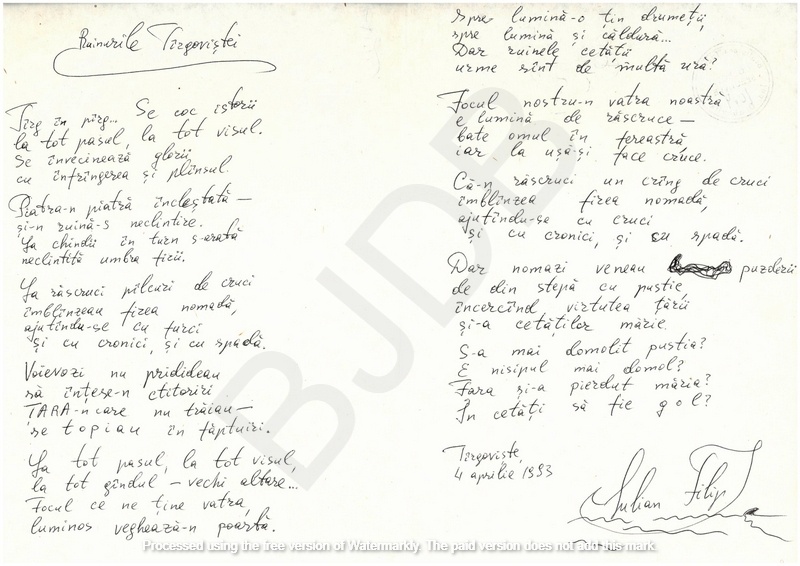 Ruinurile Tîrgoviștei
Tîrg în pîrg... Se coc istorii
la tot pasul, la tot visul.
Se învecinează glorii
cu înfrîngerea și plînsul.
Piatra-n piatră încleștată —
și-n ruină-s neclintire.
La chindii în turn s-arată
neclintită umbra firii.
La răscruci pîlcuri de cruci
îmblînzeau firea nomadă,
ajutîndu-se cu furci
și cu cronici, și cu spadă.
Voievozi nu pridideau
să întețe-n ctitoriri
ȚARA-n care nu trăiau —
se topiau în făptuiri.
La tot pasul, la tot visul,
la tot gîndul – vechi altare...
Focul ce ne ține vatra,
luminos veghează-n poartă.
spre lumină-o țin drumeții,
spre lumină și căldură...
Dar ruinele cetății
urme sînt de multă ură?
Focul nostru-n vatra noastră
e lumină de răscruce —
bate omul în fereastră
iar la ușă-și face cruce.
Că-n răscruci un crîng de cruci
îmblînzea firea nomadă,
ajutîndu-se cu cruci
și cu cronici, și cu spadă.
Dar nomazi veneau puzderii
de din stepă cu pustie,
încercînd virtutea țării
și-a cetăților mărie.
S-a mai domolit pustia?
E nisipul mai domol?
Țara și-a pierdut măria?
În cetăți să fie gol?
Tîrgoviște,
4 aprilie 1993
Iulian Filip
BJDB
Processed using the free version of Watermarkly. The paid version does not add this mark.